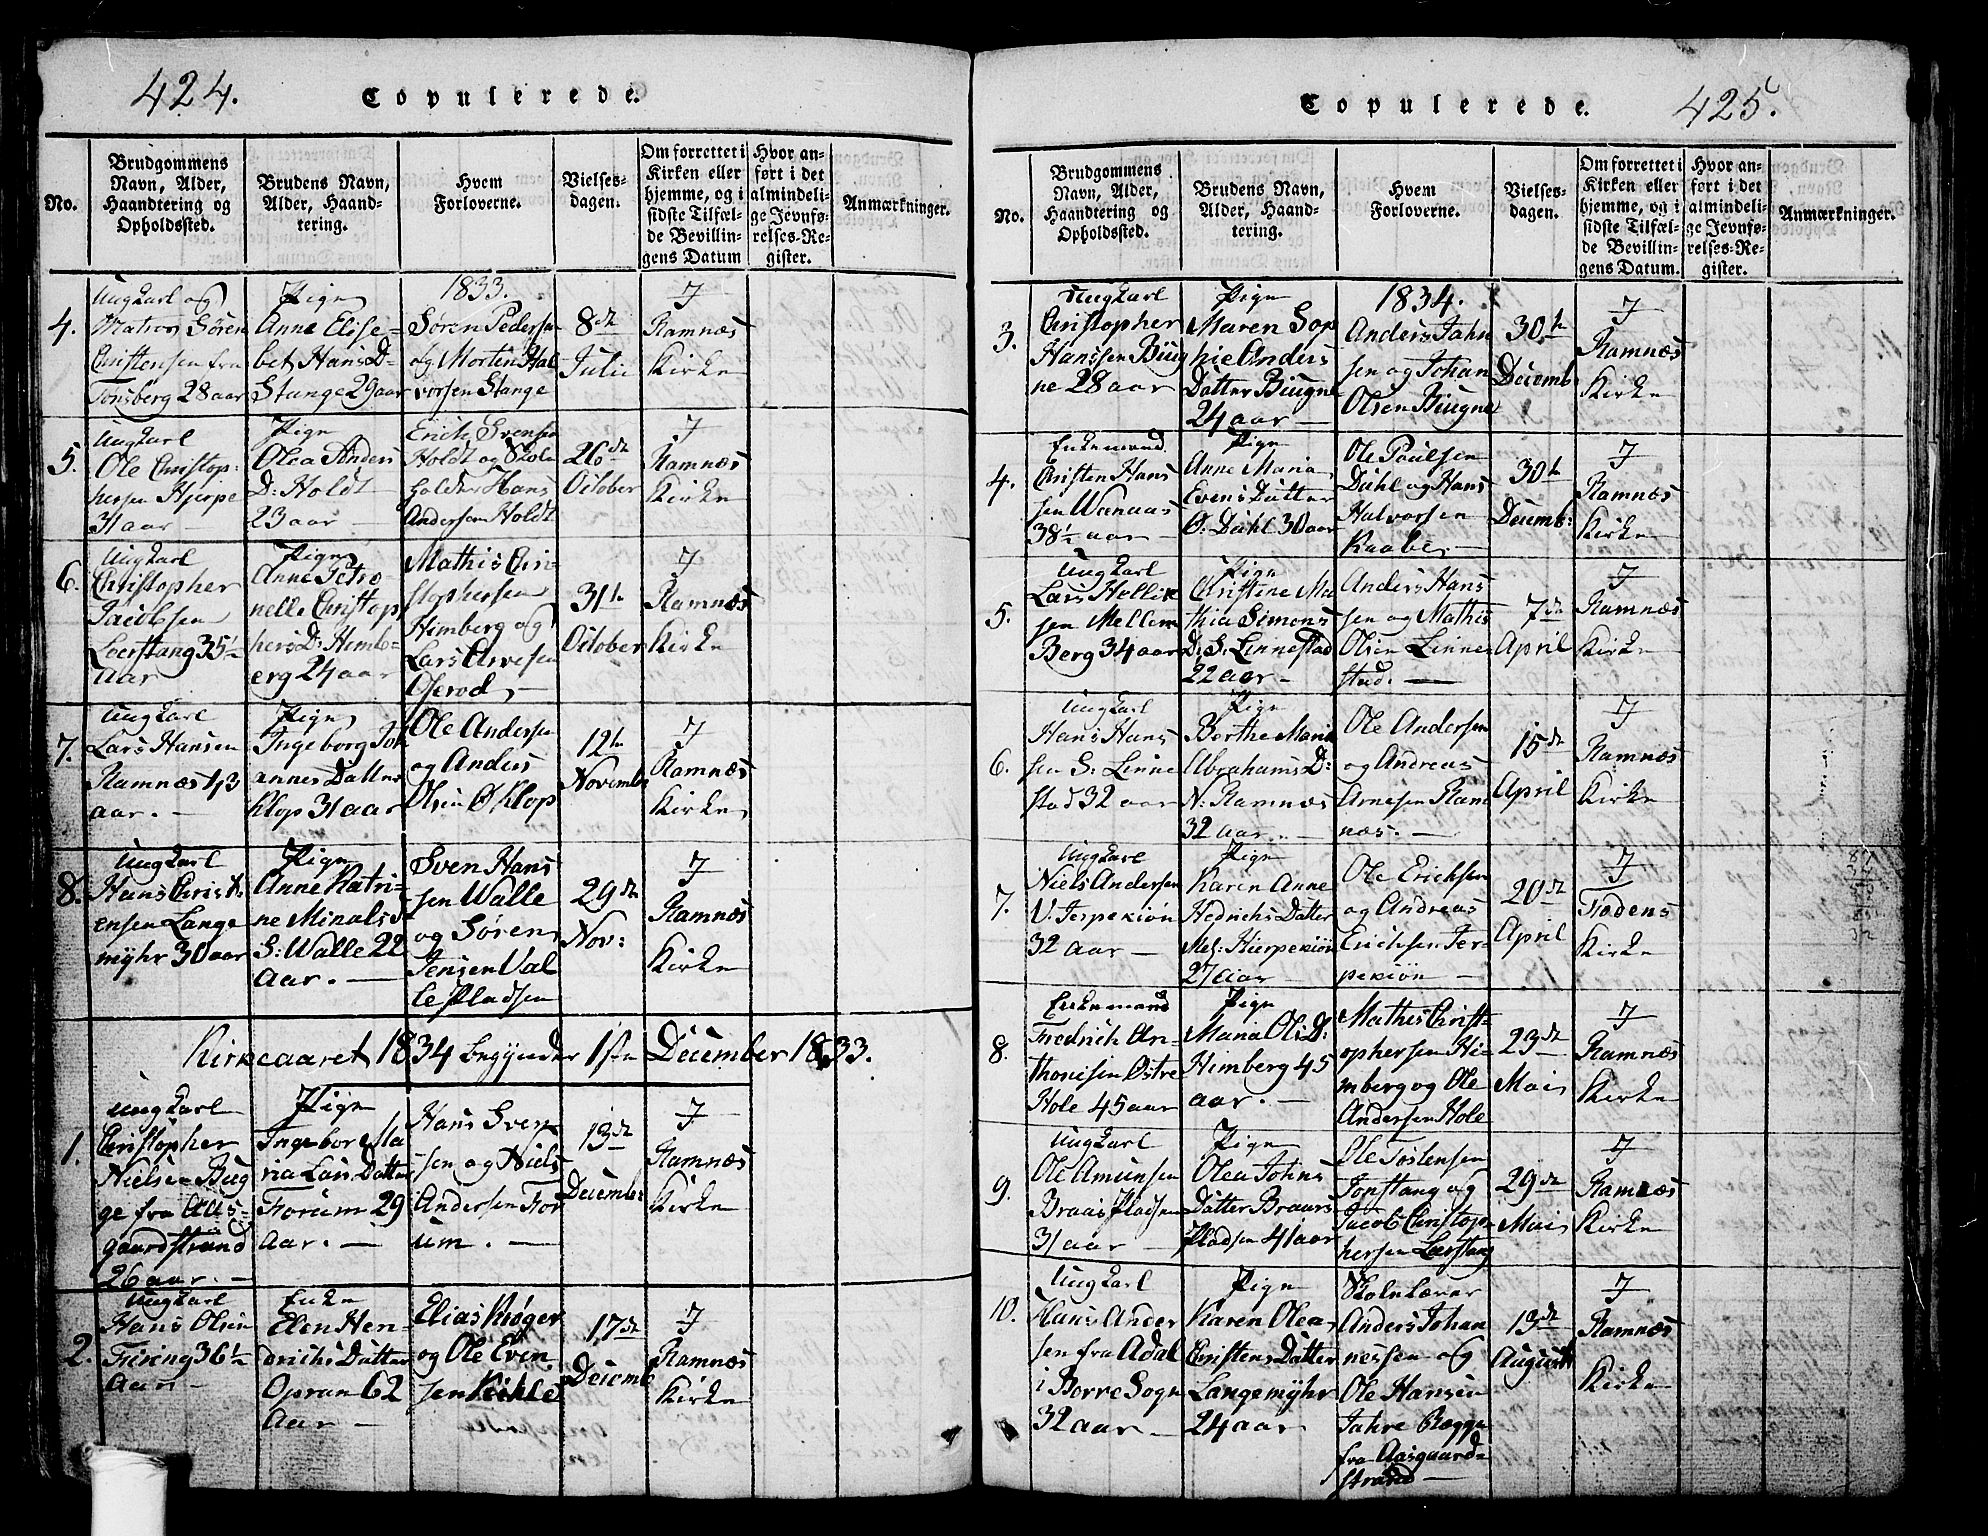 424.
Copulerede.
No.
Brudgommens
Navn, Alder,
Haandtering og
Opholdssted.
Brudens Navn,
Alder, Haand-
tering.
Hvem
Forloverne.
Vielses-
dagen.
Om forrettet i
Kirken eller
hjemme, og i
sidste Tilfæl-
de Bevillin-
gens Datum
Hvor an-
ført i det
almindeli-
ge Jevnfø-
relses-Re-
gister.
Anmærkninger.
4.
Ungkarl og
Matros Søren
Christensen fra
Tonsberg 28 aar
Pige
Anne Elise-
bet Hans D-
Stange 29 aar
1833.
Søren Pedersen
og Morten Hal
vorsen Stange
8de
Julii
I
Ramnæs
Kirke
5.
Ungkarl
Ole Christop-
hersen Hjerpe
31 aar
Pige
Olea Anders
D: Holdt
23 aar
Erich Svensen
Holdt og Skole
holder Hans
Andersen Holdt
26de
October
I
Ramnæs
Kirke
6.
Ungkarl
Christopher
Loerstang 35½
Aar
Pige
Anne Petro
nelle Christop
hers D: Himb-
erg 24 aar
Mathis Chri-
stophersen
Himberg og
Lars Arvesen
Oserod
31te
October
I
Ramnæs
Kirke
7.
Ungkarl
Lars Hansen
Ramnæs 43
aar.
Pige
Ingeborg Joh
annes Datter
Klop 31 aar
Ole Andersen
og Anders
Olsen Ø Klop
12te
Novembr
I
Ramnæs
Kirke
8.
Ungkarl
Hans Christi
ensen Lange
myhr 30 aar
Pige
Anne Katri-
ne Minals
S: Walle 22
Aar.
Sven Hans
sen Walle
og Søren
Jensen Val
le Pladsen
29de
Nov:
I
Ramnæs
Kirke
Kirkeaaret 1834 begynder 1ste December 1833.
1.
Ungkarl
Christopher
Nielsen Bug
ge fra Aas-
gaardstrand
26 aar.
Pige
Ingebor Ma
ria Lars Datter
Forum 29
Aar.
Hans Sven
sen og Niels
Andersen For
um.
13de
Decembr
I
Ramnæs
Kirke
2.
Ungkarl
Hans Olsen
Friring 36½
Aar
Enke
Elen Hen-
drichs Datter
Opran 62
Aar
Elias Krøger
og Ole Even
sen Kihle
17de
Decemb
I
Ramnæs
Kirke
425.
Copulerede.
No.
Brudgommens
Navn, Alder,
Haandtering og
Opholdssted.
Brudens Navn,
Alder, Haand-
tering.
Hvem
Forloverne.
Vielses-
dagen.
Om forrettet i
Kirken eller
hjemme, og i
sidste Tilfæl-
de Bevillin-
gens Datum.
Hvor an-
ført i det
almindeli-
ge Jevnfø-
relses-Re-
gister.
Anmærkninger.
3.
Ungkarl
Christopher
Hanssen Biug
ne 28 aar
Pige
Maren Sop
hie Anders
Datter Biugne
24 aar
1834.
Anders Jahn
sen og Johan
Olsen Biugne
30te
Decemb
I
Ramnæs
Kirke
4.
Enkemand
Christen Hans
sen Wænaas
38½ aar
Pige
Anne Maria
Evens Datter
Ø. Dahl 30 aar
Ole Paulsen
Dahl og Hans
Halvorsen
Kaabe
30te
Decemb:
I
Ramnæs
Kirke
5.
Ungkarl
Lars Hollie
sen Mellem
Berg 34 aar
Pige
Christine Ma
thia Simons
D: S: Linnestad
22 aar
Anders Hans
sen og Mathis
Olsen Linne
stad.
7de
April
I
Ramnæs
Kirke
6.
Ungkarl
Hans Hans
sen S: Linne
stad 32 aar
Pige
Berthe Maria
Abrahams D:
N: Ramnæs
32 aar.
Ole Andersen
og Andreas
Arnesen Ram
næs.
15de
April
I
Ramnæs
Kirke
7.
Ungkarl
Niels Andersen
V. Jerpekiøn
32 aar
Pige
Karen Anne
Hedrichs Datter
Mel: Hierpekiøn
27 aar
Ole Ericksen
og Andreas
Ericksen Jer-
pekiøn
20de
April
I
Fodens
Kirke
8.
Enkemand
Fredrich An-
thonisen Østre
Hole 45 aar
Pige
Maria Ols D:
Himberg 45
aar.
Mathis Christ-
ophersen Hi-
mberg og Ole
Andersen Hole
23de
Mai
I
Ramnæs
Kirke
9.
Ungkarl
Ole Amunsen
Braars Pladsen
31 aar
Pige
Olea Johns
Datter Braars
Pladsen 41 aar
Ole Tostensen
Tonstang og
Jacob Christop-
hersen Lærstang
29de
Mai
I
Ramnæs
Kirke
10.
Ungkarl
Hans Ander
sen fra Adal
i Borre Sogn
32 aar
Pige
Karen Olea
Christens Datter
Langemyhr
24 aar
Skolelærer
Anders Johan
nessen og
Ole Hansen
Jahre Bogge
fra Aasgaard-
strand
13de
August
I
Ramnæs
Kirke